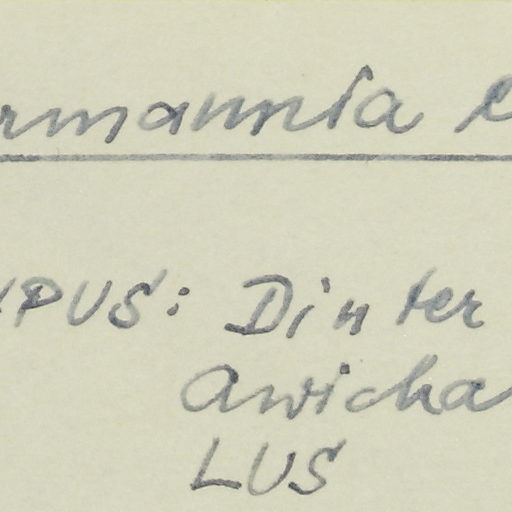 rmannia e
YPUS: Dinter
Awicha
LUS